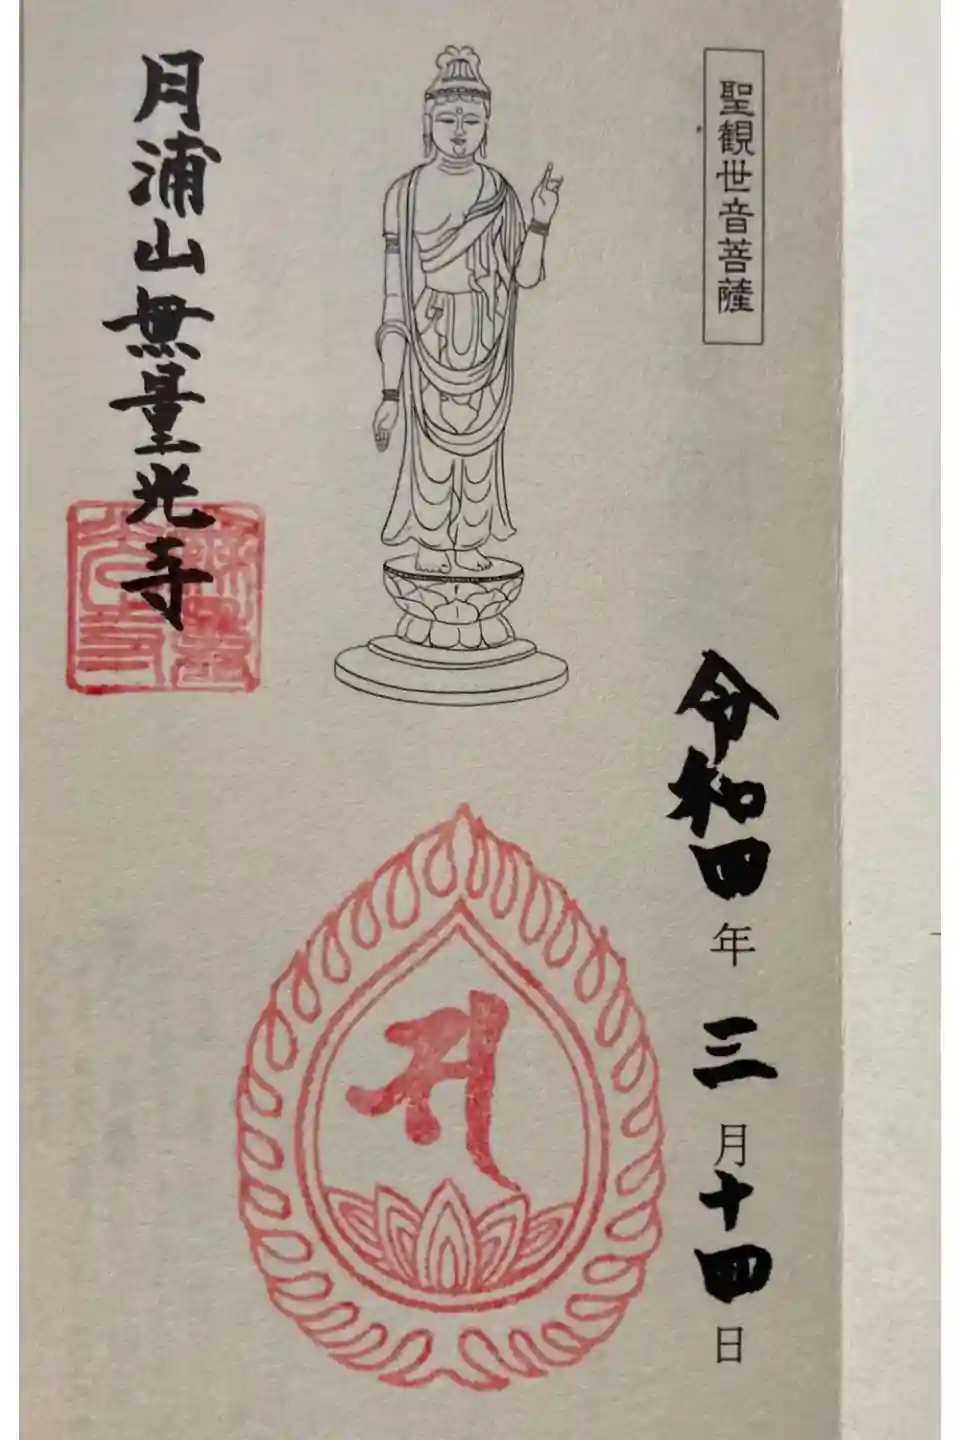 聖観世音菩薩
令和四年三月十四日
月浦山無量光寺
無量
光寺